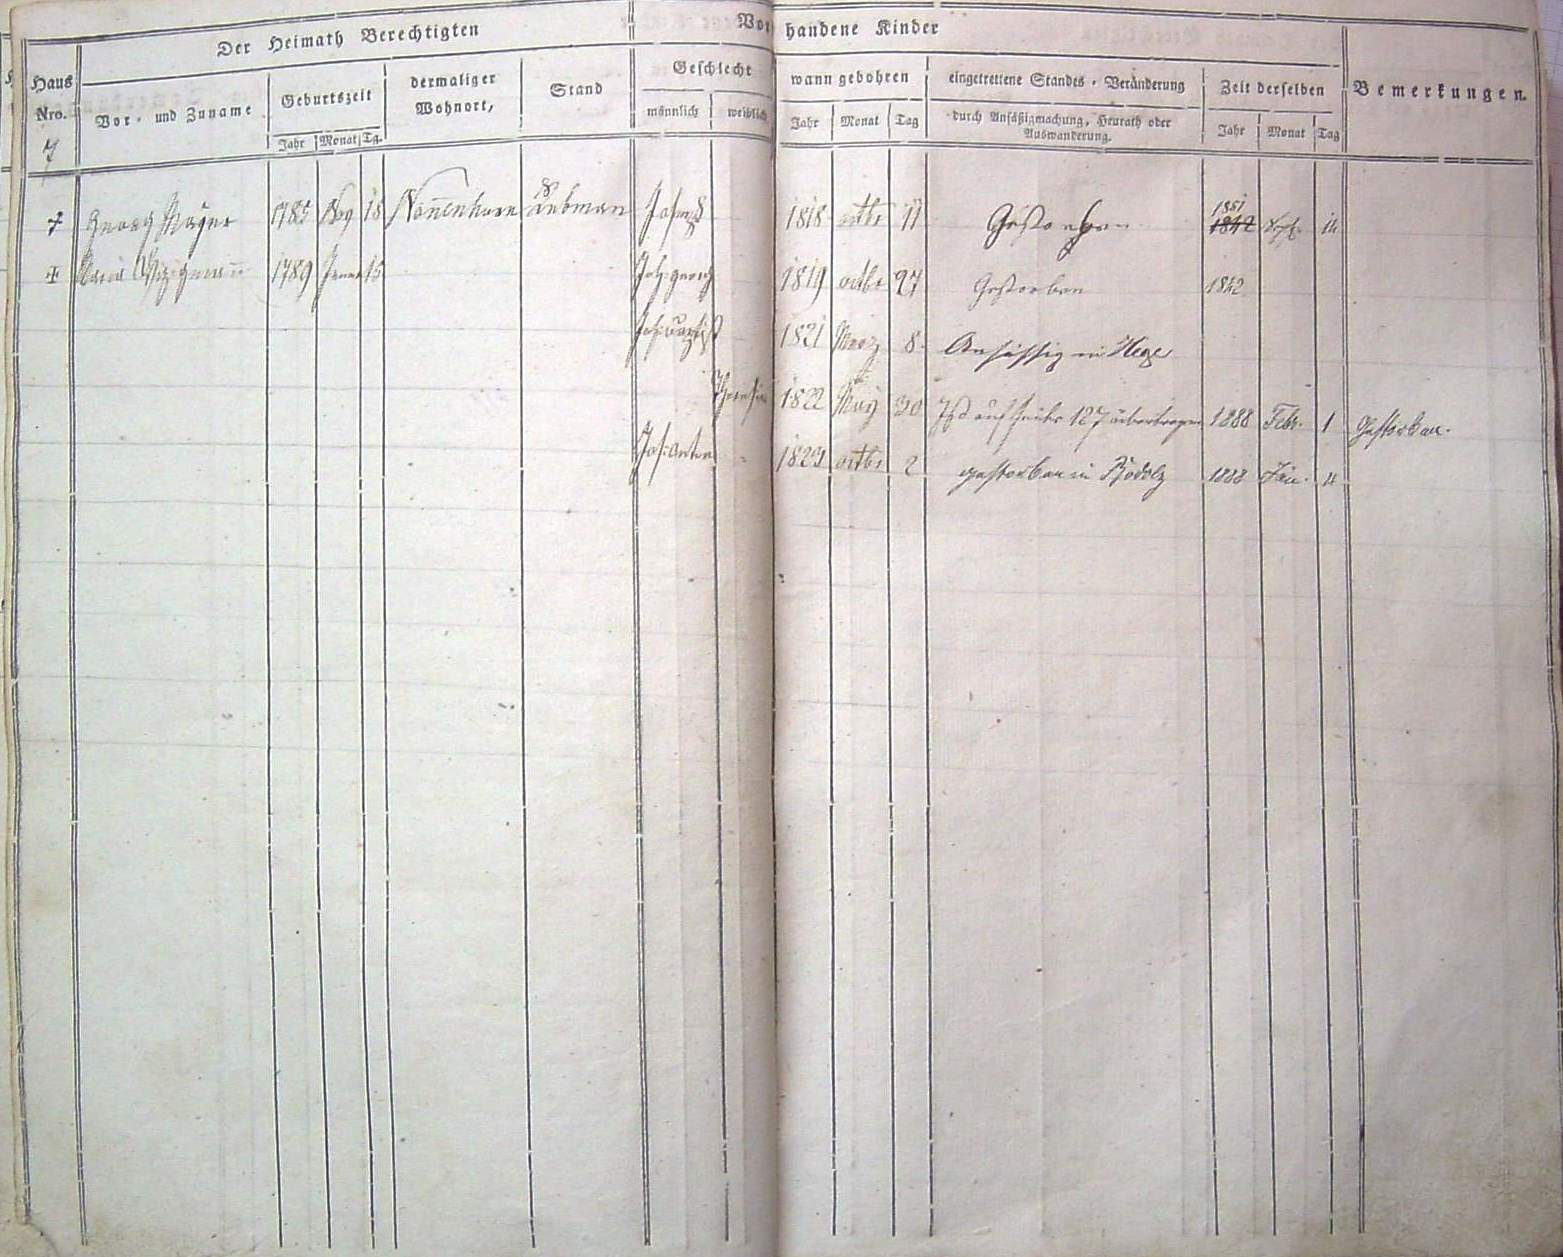 Der Heimath Berechtigten
Vorhandene Kinder
Haus Nro.
Vor- und Zuname
Geburtszeit
Jahr Monat Tg.
dermaliger Wohnort,
Stand
Geschlecht
männlich weiblich
wann gebohren
Jahr Monat Tag
eingetrettene Standes-Veränderung
durch Ansäßigmachung, Heurath oder
Auswanderung.
Zeit derselben
Jahr Monat Tag
Bemerkungen.
7
† Georg Mayer 1785 18 Nonnenhorn Rebman Joseph 1818 octbr 11 Gestorben 1851 1842 14
† Maria 1789 Jenner 15 Joh: georg 1819 octbr 27 Gestorben 1842
Joh: Baptist 1821 Merz 8 Ansässig in Hege
Theresia 1822 May 30 Ist auf 127 übertragen 1888 Febr. 1 Gestorben.
Jos: Anton 1829 octbr 2 gestorben in Bodolz 1888 Jän. 4